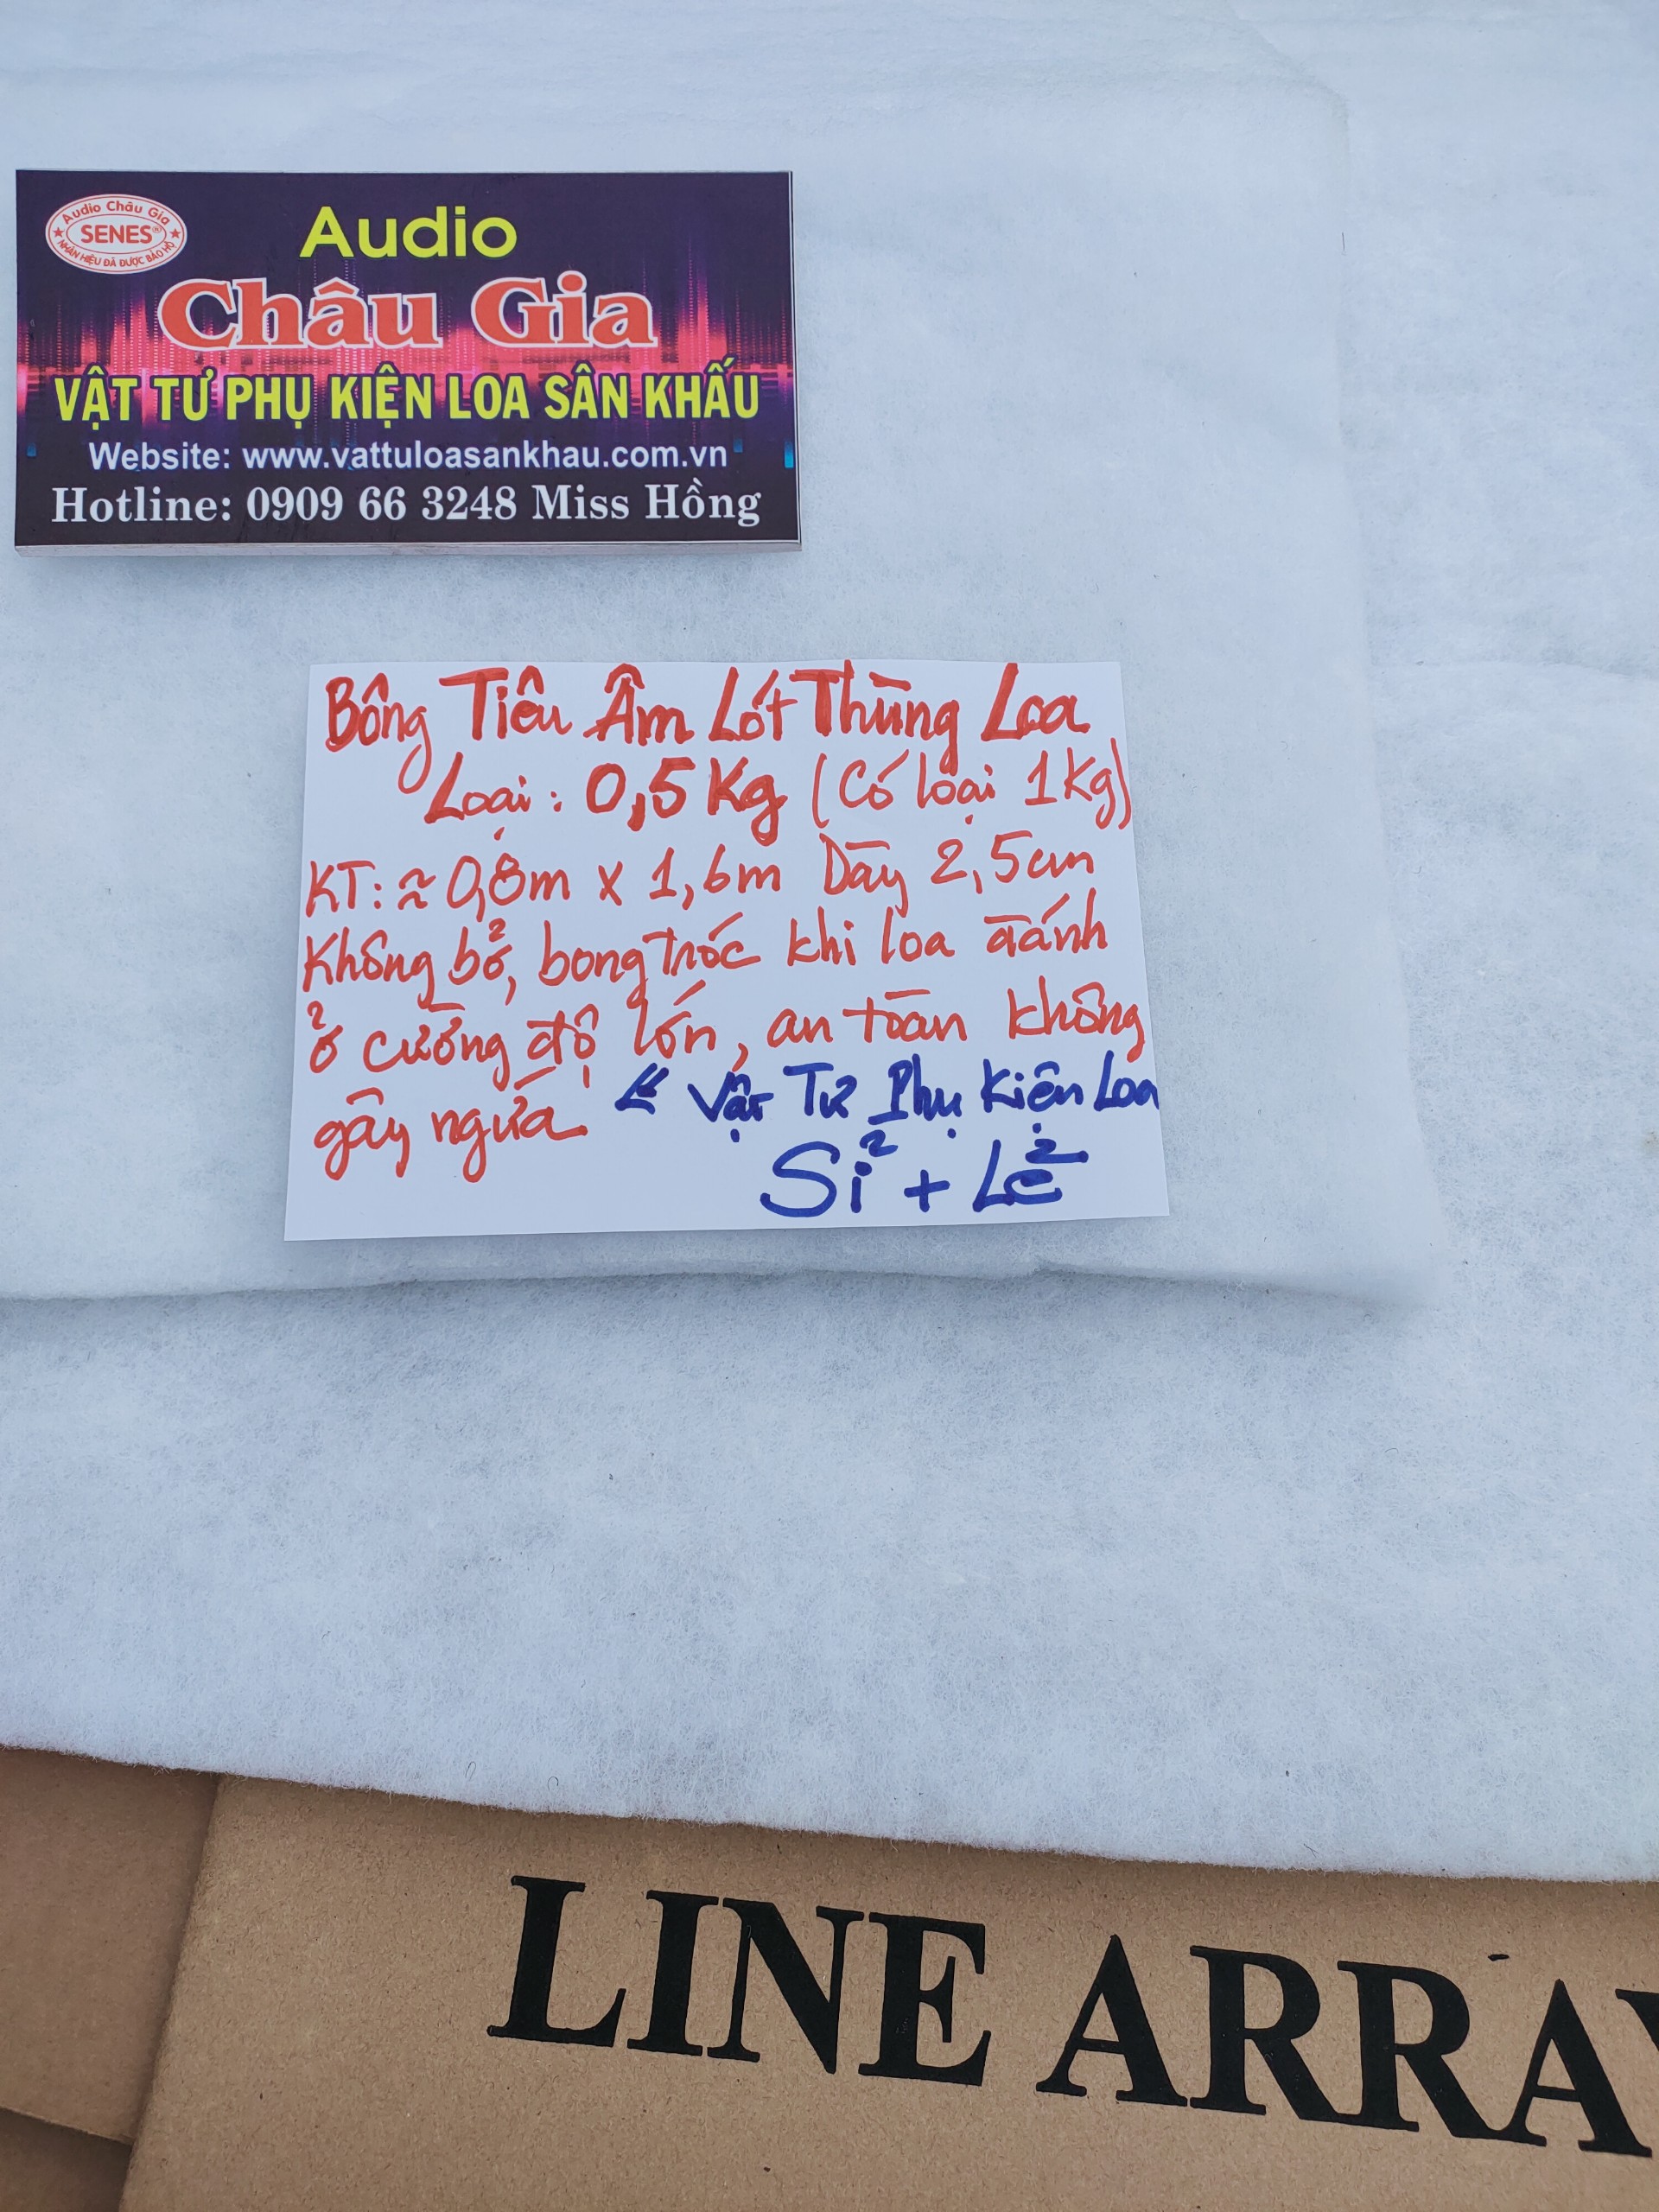 Audio Châu Gia
SENES®
NHÃN HIỆU ĐÃ ĐƯỢC BẢO HỘ
Audio
Châu Gia
VẬT TƯ PHỤ KIỆN LOA SÂN KHẤU
Website: www.vattuloasankhau.com.vn
Hotline: 0909 66 3248 Miss Hồng
Bông Tiêu Âm Lót Thùng Loa
Loại: 0,5 Kg (Có loại 1 Kg)
KT: ≈ 0,8m x 1,6m Dày 2,5cm
Không bở, bong tróc khi loa đánh
ở cường độ lớn, an toàn không
gây ngứa
Vật Tư Phụ Kiện Loa
Sỉ + Lẻ
LINE ARRAY